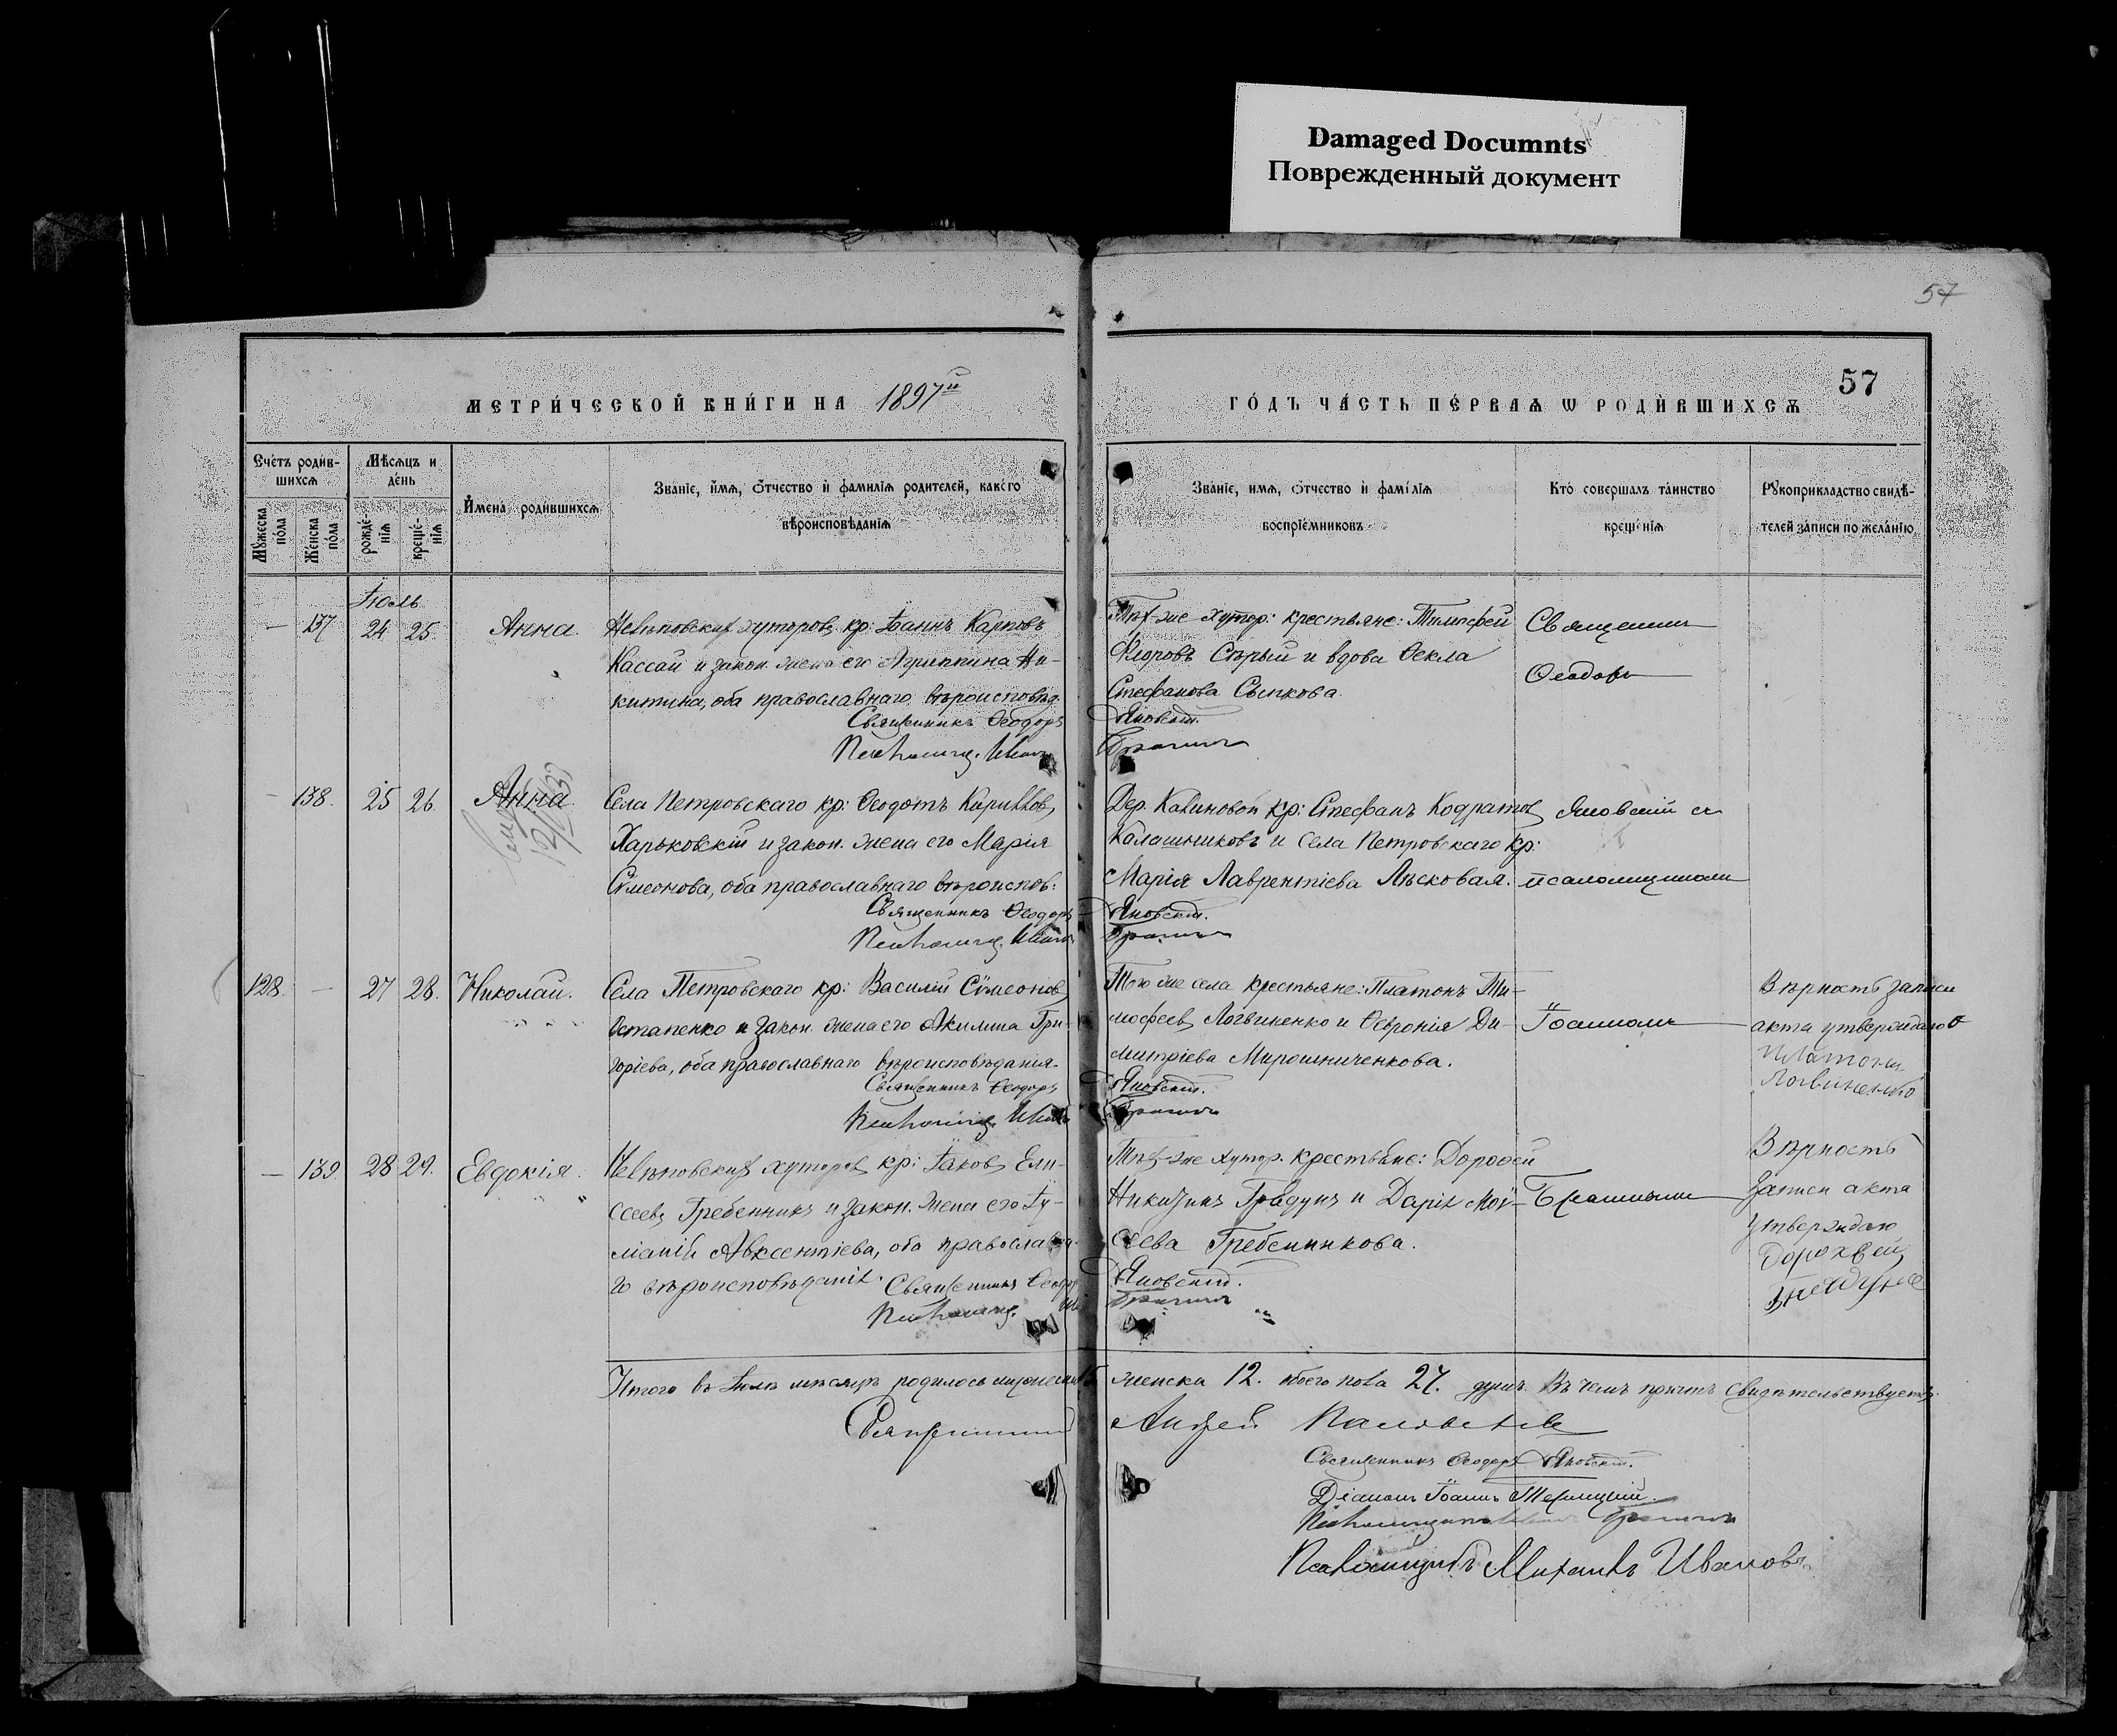 Damaged Documnts
Поврежденный документ
57
57
МЕТРИ́ЧЕСКОЙ КНИ́ГИ НА 1897й
ГО́ДЪ ЧА́СТЬ ПЕ́РВАѦ Ѡ РОДИ́ВШИХСѦ
Счетъ роди́в-
шихсѧ
Мꙋ́жеска по́ла
Же́нска по́ла
Мѣ́сѧцъ и
де́нь
рожде́-
нїѧ
креще́-
нїѧ
И҆мена̀ роди́вшихсѧ
Зва́нїе, и҆́мѧ, ѻ҆́тчество и҆ фами́лїѧ роди́телей, како́го
вѣроисповѣ́данїѧ
Зва́нїе, и҆́мѧ, ѻ҆́тчество и҆ фами́лїѧ
воспрїе́мниковъ
Кто̀ соверша́лъ та́инство
креще́нїѧ
Рꙋкоприкла́дство свидѣ́-
телей за́писи по жела́нїю
Іюль
— 137 24 25 Анна.
Кассай и закон. жена его Агриппина Ни-
китина, оба православнаго вѣроисповѣд.
Священникъ Ѳеодоръ
Тѣх-же хутор: крестьяне: Тимофей
Флоровъ Сѣрый и вдова Ѳекла
Стефанова Сычкова.
Яновскій.
Священникъ
Ѳеодоръ
— 138. 25 26 Анна
Села Петровскаго кр: Ѳеодотъ Кирилловъ
Харьковскій и закон. жена его Марія
Сѵмеонова, оба православнаго вѣроиспов:
Священникъ Ѳеодоръ
Дер. Калиновой кр: Стефанъ Кодратов
Калашниковъ и села Петровскаго кр:
Марія Лаврентіева Лѣсковая.
Яновскій.
Яновскій съ
псаломщикомъ
128. — 27 28. Николай.
Села Петровскаго кр: Василій Сѵмеоновъ
Остапенко и закон. жена его Акилина Гри-
горіева, оба православнаго вѣроисповѣданія.
Священникъ Ѳеодоръ
Того же села крестьяне: Платонъ Ти-
мофеевъ Логвиненко и Ѳевронія Ди-
митріева Мирошниченкова.
Яновскій.
Іоанномъ
Вѣрность записи
акта утверждаю
Платонъ
Логвиненко
— 139. 28 29. Евдокія.
хуторовъ кр: Іаковъ Ели-
сеевъ Гребенникъ и закон. жена его Іу-
ліанія Авксентіева, оба православна-
го вѣроисповѣданія. Священникъ Ѳеодоръ
Тѣх-же хутор. крестьяне: Дороѳей
Никитинъ Градунъ и Дарія Мої-
сеева Гребенникова.
Яновскій.
Вѣрность
записи акта
утверждаю
Дорохвей
Итого въ Іюлѣ мѣсяцѣ родилось мужеска 15 женска 12. обоего пола 27. душъ. Въ чемъ причтъ свидѣтельствуетъ.
Священникъ Андрей
Священникъ Ѳеодоръ Яновскій.
Діаконъ Іоаннъ
Псаломщикъ
Псаломщикъ Михаилъ Ивановъ.